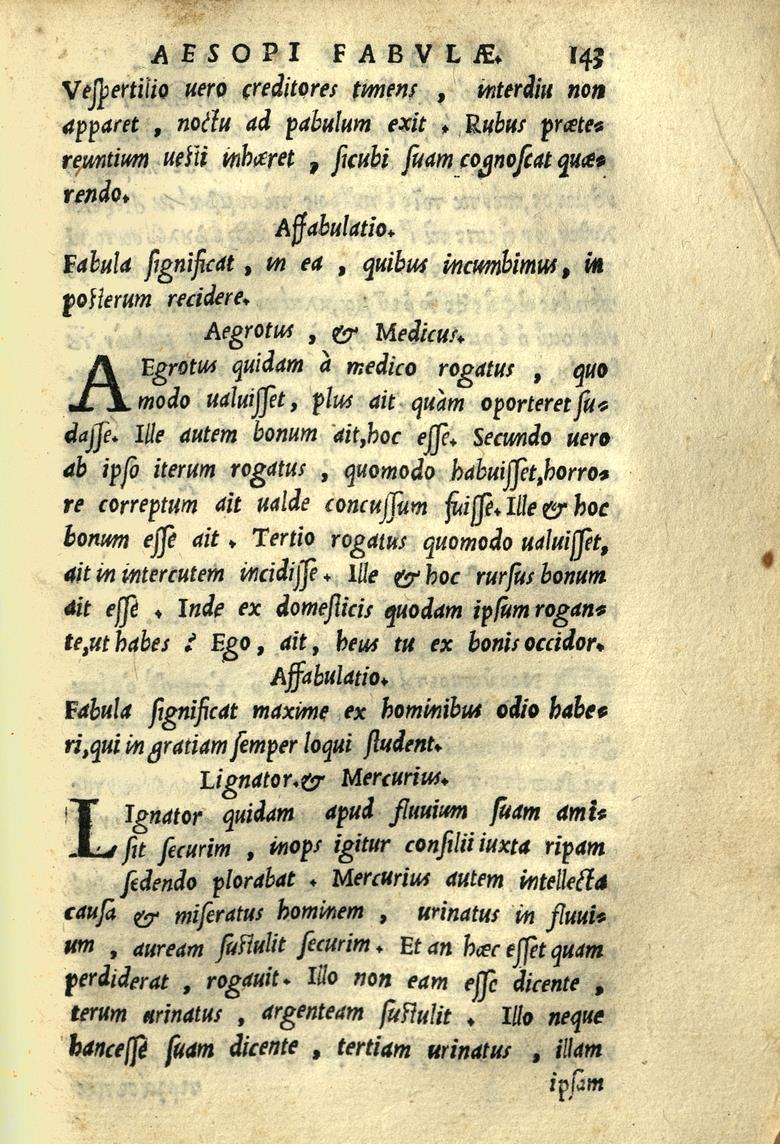 AESOPI FABVLÆ. 143
Veſpertilio uero creditores timens , interdiu non
apparet , noctu ad pabulum exit . Rubus præte-
reuntium ueſti inhæret , ſicubi ſuam cognoſcat quæ-
rendo.
Affabulatio.
Fabula ſignificat , in ea , quibus incumbimus, in
poſterum recidere.
Aegrotus , & Medicus.
AEgrotus quidam à medico rogatus , quo
modo ualuiſſet, plus ait quàm oporteret ſu-
daſſe. Ille autem bonum ait,hoc eſſe. Secundo uero
ab ipſo iterum rogatus , quomodo habuiſſet,horro-
re correptum ait ualde concuſſum fuiſſe. Ille & hoc
bonum eſſe ait . Tertio rogatus quomodo ualuiſſet,
ait in intercutem incidiſſe . Ille & hoc rurſus bonum
ait eſſe . Inde ex domeſticis quodam ipſum rogan-
te,ut habes ? Ego, ait, heus tu ex bonis occidor.
Affabulatio.
Fabula ſignificat maxime ex hominibus odio habe-
ri,qui in gratiam ſemper loqui ſtudent.
Lignator.& Mercurius.
LIgnator quidam apud fluuium ſuam ami-
ſit ſecurim , inops igitur conſilii iuxta ripam
ſedendo plorabat . Mercurius autem intellecta
cauſa & miſeratus hominem , urinatus in fluui-
um , auream ſuſtulit ſecurim . Et an hæc eſſet quam
perdiderat , rogauit. Illo non eam eſſe dicente ,
terum urinatus , argenteam ſuſtulit . Illo neque
hanceſſe ſuam dicente , tertiam urinatus , illam
ipſam